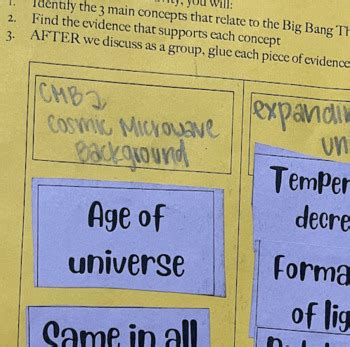 1. Identify the 3 main concepts that relate to the Big Bang Th
2. Find the evidence that supports each concept
3. AFTER we discuss as a group, glue each piece of evidence
CMB
Cosmic Microwave
Background
Age of
universe
Same in all
expandin
un
Temper
decre
Forma
of lig